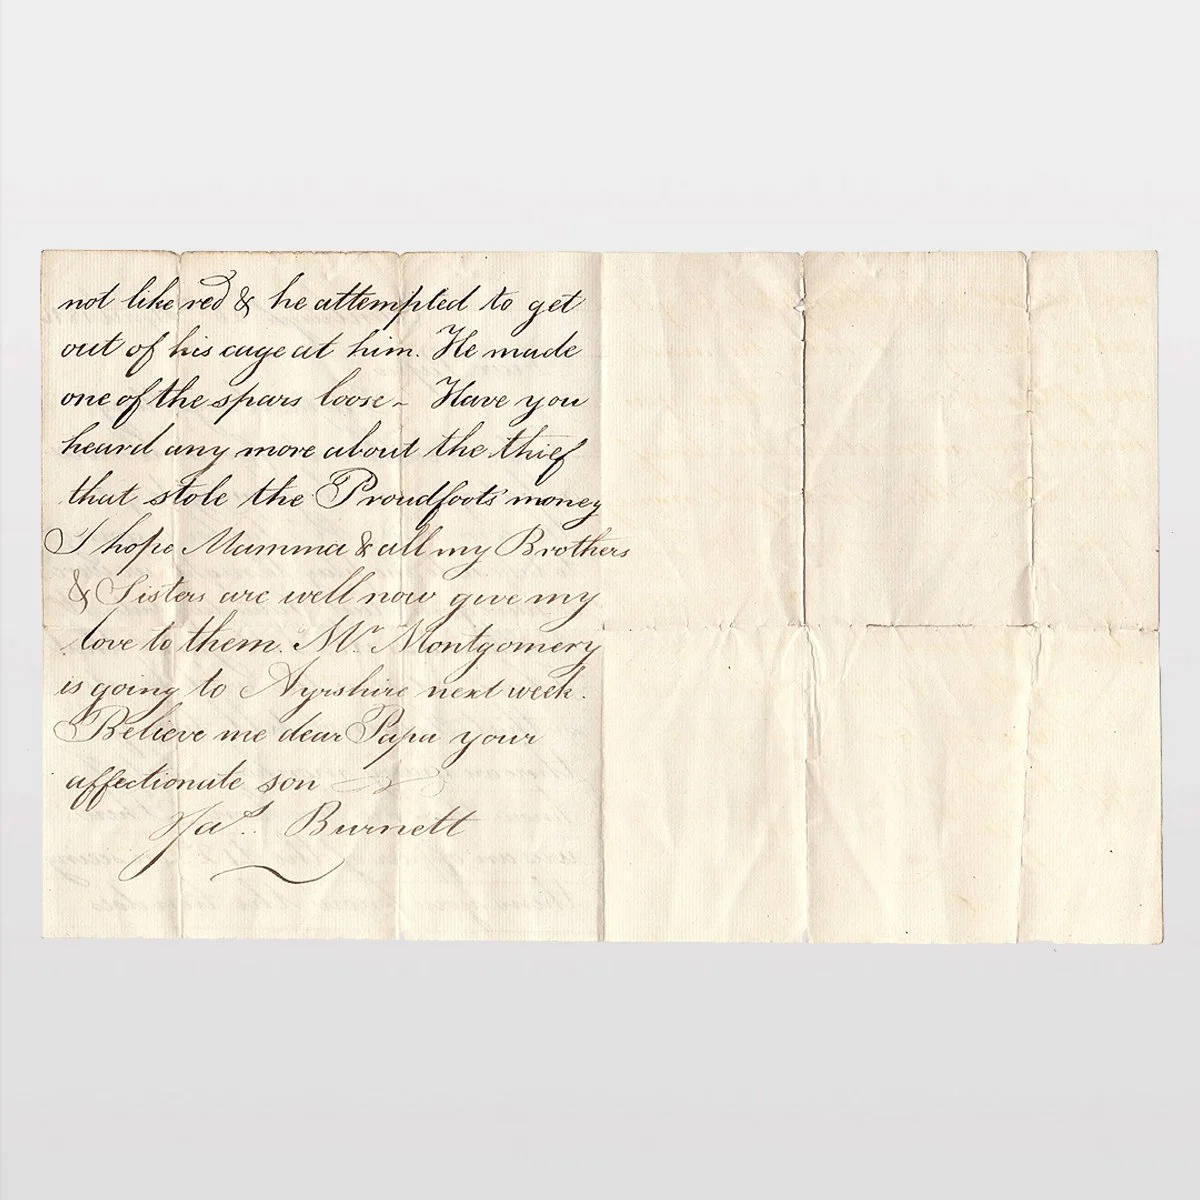 not like red & he attempted to get
out of his cage at him. He made
one of the spars loose - Have you
heard any more about the thief
that stole the Proudfoots' money
I hope Mamma & all my Brothers
& Sisters are well now give my
love to them. Mr Montgomery
is going to Ayrshire next week.
Believe me dear Papa your
affectionate son
Jas. Burnett